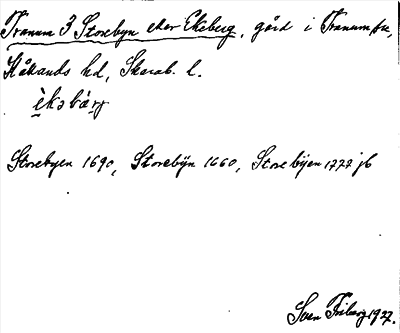 Tranum 3 Storebyn eller Ekeberg, gård i Tranum sn,
Kållands hd, Skarab. l.
èksbárj
Storebyen 1690, Storebÿn 1660, Store bÿen 1777 jb
Sven Friberg 1927.